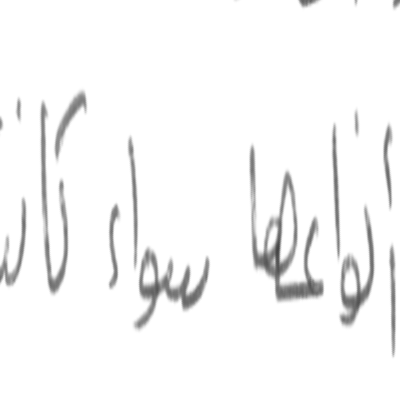 أنواعها سواء كانت